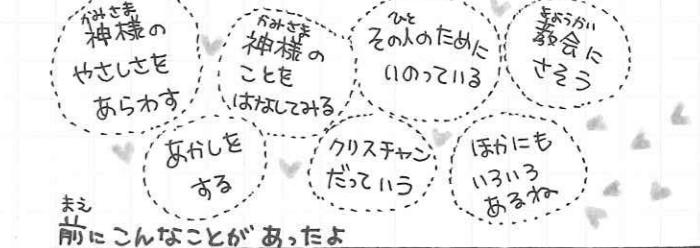 かみさま
神様の
やさしさを
あらわす
かみさま
神様の
ことを
はなしてみる
ひと
その人のために
いのっている
きょうかい
教会に
さそう
あかしを
する
クリスチャン
だっていう
ほかにも
いろいろ
あるね
まえ
前にこんなことがあったよ